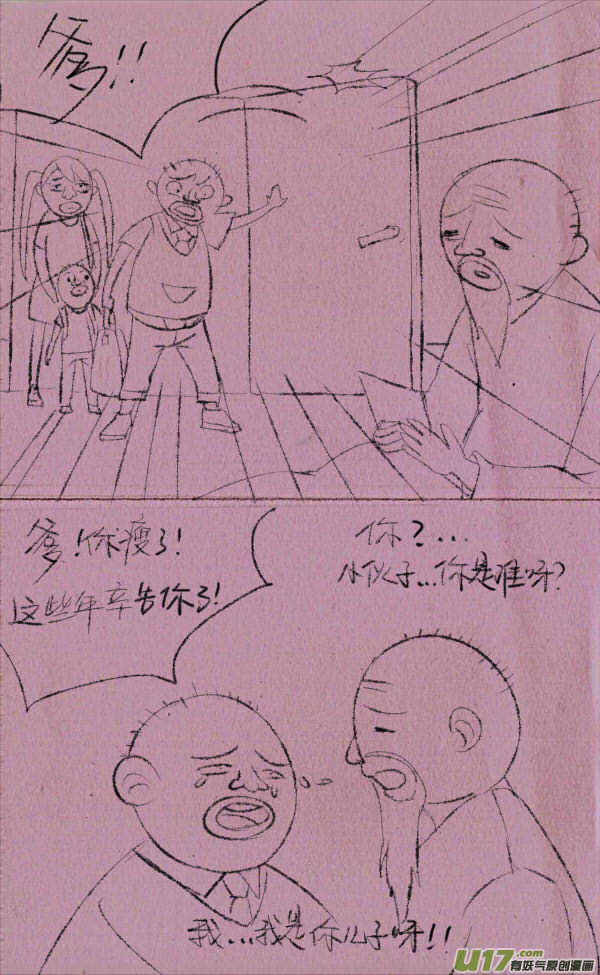 爹!!
爹!你瘦了!
这些年辛苦你了!
你?...
小伙子...你是谁呀?
我...我是你儿子呀!!
U17.com
有妖气原创漫画